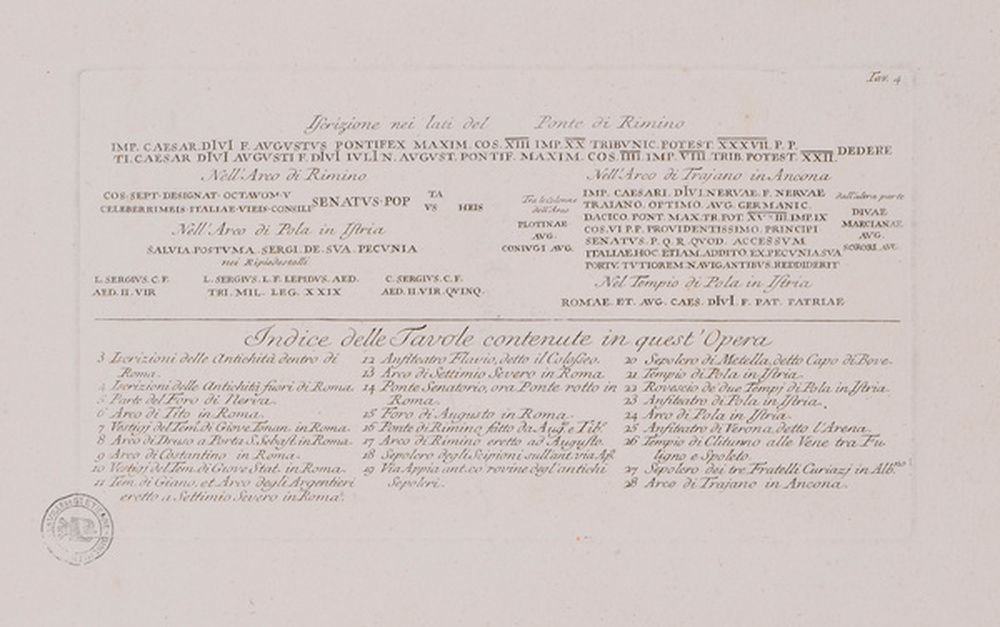 Tav. 4
Iscrizione nei lati del Ponte di Rimino
IMP. CAESAR. DIVI F. AVGVSTVS PONTIFEX MAXIM. COS. XIII IMP. XX TRIBVNIC. POTEST. XXXVII. P. P.
TI. CAESAR DIVI AVGVSTI F. DIVI IVLI N. AVGVST. PONTIF. MAXIM. COS. IIII. IMP. VIII. TRIB. POTEST. XXII. DEDERE
Nell'Arco di Rimino
COS. SEPT. DESIGNAT. OCTAVOM. V
CELEBERRIMEIS. ITALIAE. VIEIS. CONSILI SENATVS. POP
TA
VS HEIS
Nell'Arco di Pola in Istria
SALVIA. POSTVMA. SERGI. DE. SVA. PECVNIA
nei Piedestelli
L. SERGIVS. C. F.
AED. II. VIR
L. SERGIVS. L. F. LEPIDVS. AED.
TRI. MIL. LEG. XXIX
C. SERGIVS. C. F.
AED. II. VIR. QVINQ.
Nell'Arco di Trajano in Ancona
Tra le Colonne
dell'Arco
PLOTINAE
AVG.
CONIVGI AVG.
IMP. CAESARI. DIVI. NERVAE. F. NERVAE
TRAIANO. OPTIMO. AVG. GERMANIC.
DACICO. PONT. MAX. TR. POT. XVIIII. IMP. IX
COS. VI. P. P. PROVIDENTISSIMO. PRINCIPI
SENATVS. P. Q. R. QVOD. ACCESSVM
ITALIAE. HOC. ETIAM. ADDITO. EX. PECVNIA. SVA
PORTV. TVTIOREM. NAVIGANTIBVS. REDDIDERIT
dall'altra parte
DIVAE
MARCIANAE
AVG.
SORORI. AVG.
Nel Tempio di Pola in Istria
ROMAE. ET. AVG. CAES. DIVI. F. PAT. PATRIAE
Indice delle Tavole contenute in quest'Opera
3 Iscrizioni delle Antichità dentro di
Roma.
4 Iscrizioni delle Antichità fuori di Roma.
5 Parte del Foro di Nerva.
6 Arco di Tito in Roma.
7 Vestigj del Tem. di Giove Tonan. in Roma.
8 Arco di Druso a Porta S. Sebast. in Roma.
9 Arco di Costantino in Roma.
10 Vestigj del Tem. di Giove Stat. in Roma.
11 Tem. di Giano, et Arco degli Argentieri
eretto a Settimio Severo in Roma.
12 Anfiteatro Flavio, detto il Colosseo.
13 Arco di Settimio Severo in Roma.
14 Ponte Senatorio, ora Ponte rotto in
Roma.
15 Foro di Augusto in Roma.
16 Ponte di Rimino fatto da Aug. e Tib.
17 Arco di Rimino eretto ad Augusto.
18 Sepolcro degli Scipioni sull'ant. via Ap.
19 Via Appia ant. co' rovine degl'antichi
Sepolcri.
20 Sepolcro di Metella, detto Capo di Bove.
21 Tempio di Pola in Istria.
22 Rovescio de' due Tempj di Pola in Istria.
23 Anfiteatro di Pola in Istria.
24 Arco di Pola in Istria.
25 Anfiteatro di Verona detto l'Arena.
26 Tempio di Clitunno alle Vene tra Fu
ligno e Spoleto.
27 Sepolcro dei tre Fratelli Curiazj in Alb.no
28 Arco di Trajano in Ancona.